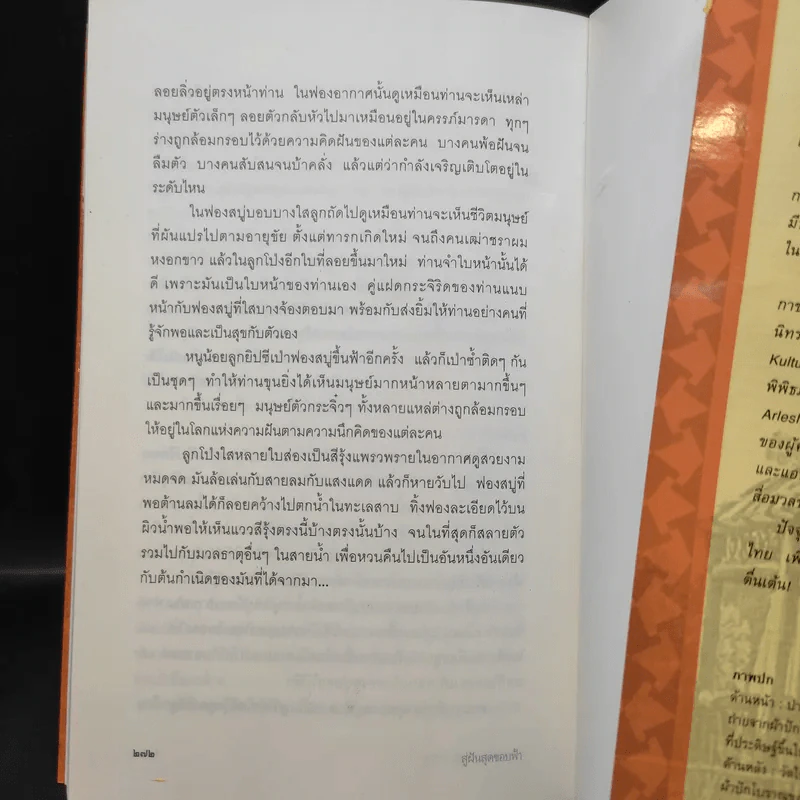 ลอยลิ่วอยู่ตรงหน้าท่าน ในฟองอากาศนั้นดูเหมือนท่านจะเห็นเหล่า
มนุษย์ตัวเล็กๆ ลอยตัวกลับหัวไปมาเหมือนอยู่ในครรภ์มารดา ทุกๆ
ร่างถูกล้อมกรอบไว้ด้วยความคิดฝันของแต่ละคน บางคนพ้อฝันจน
ลืมตัว บางคนสับสนจนบ้าคลั่ง แล้วแต่ว่ากำลังเจริญเติบโตอยู่ใน
ระดับไหน
ในฟองสบู่บอบบางใสลูกถัดไปดูเหมือนท่านจะเห็นชีวิตมนุษย์
ที่ผันแปรไปตามอายุขัย ตั้งแต่ทารกเกิดใหม่ จนถึงคนเฒ่าชราผม
หงอกขาว แล้วในลูกโป่งอีกใบที่ลอยขึ้นมาใหม่ ท่านจำใบหน้านั้นได้
ดี เพราะมันเป็นใบหน้าของท่านเอง คู่แฝดกระจิริดของท่านแนบ
หน้ากับฟองสบู่ที่ใสบางจ้องตอบมา พร้อมกับส่งยิ้มให้ท่านอย่างคนที่
รู้จักพอและเป็นสุขกับตัวเอง
หนูน้อยลูกยิปซีเป่าฟองสบู่ขึ้นฟ้าอีกครั้ง แล้วก็เป่าซ้ำติดๆ กัน
เป็นชุดๆ ทำให้ท่านขุนยิ่งได้เห็นมนุษย์มากหน้าหลายตามากขึ้นๆ
และมากขึ้นเรื่อยๆ มนุษย์ตัวกระจิ๋วๆ ทั้งหลายแหล่ต่างถูกล้อมกรอบ
ให้อยู่ในโลกแห่งความฝันตามความนึกคิดของแต่ละคน
ลูกโป่งใสหลายใบส่องเป็นสีรุ้งแพรวพรายในอากาศดูสวยงาม
หมดจด มันล้อเล่นกับสายลมกับแสงแดด แล้วก็หายวับไป ฟองสบู่ที่
พอต้านลมได้ก็ลอยคว้างไปตกน้ำในทะเลสาบ ทิ้งฟองละเอียดไว้บน
ผิวน้ำพอให้เห็นแววสีรุ้งตรงนี้บ้างตรงนั้นบ้าง จนในที่สุดก็สลายตัว
รวมไปกับมวลธาตุอื่นๆ ในสายน้ำ เพื่อหวนคืนไปเป็นอันหนึ่งอันเดียว
กับต้นกำเนิดของมันที่ได้จากมา...
๒๗๒
สู่ฝันสุดขอบฟ้า
ก
มี
ใน
กาช
นิทร
Kultu
พิพิธภ
Arlesh
ของผู้ค
และแอ
สื่อมวลช
ปัจจุ
ไทย เพื
ตื่นเต้น!
ภาพปก
ด้านหน้า : ปา
ถ่ายจากผ้าปัก
ที่ประดิษฐ์ขึ้นใ
ด้านหลัง : วัดใ
ผ้าปักโบราณขอ